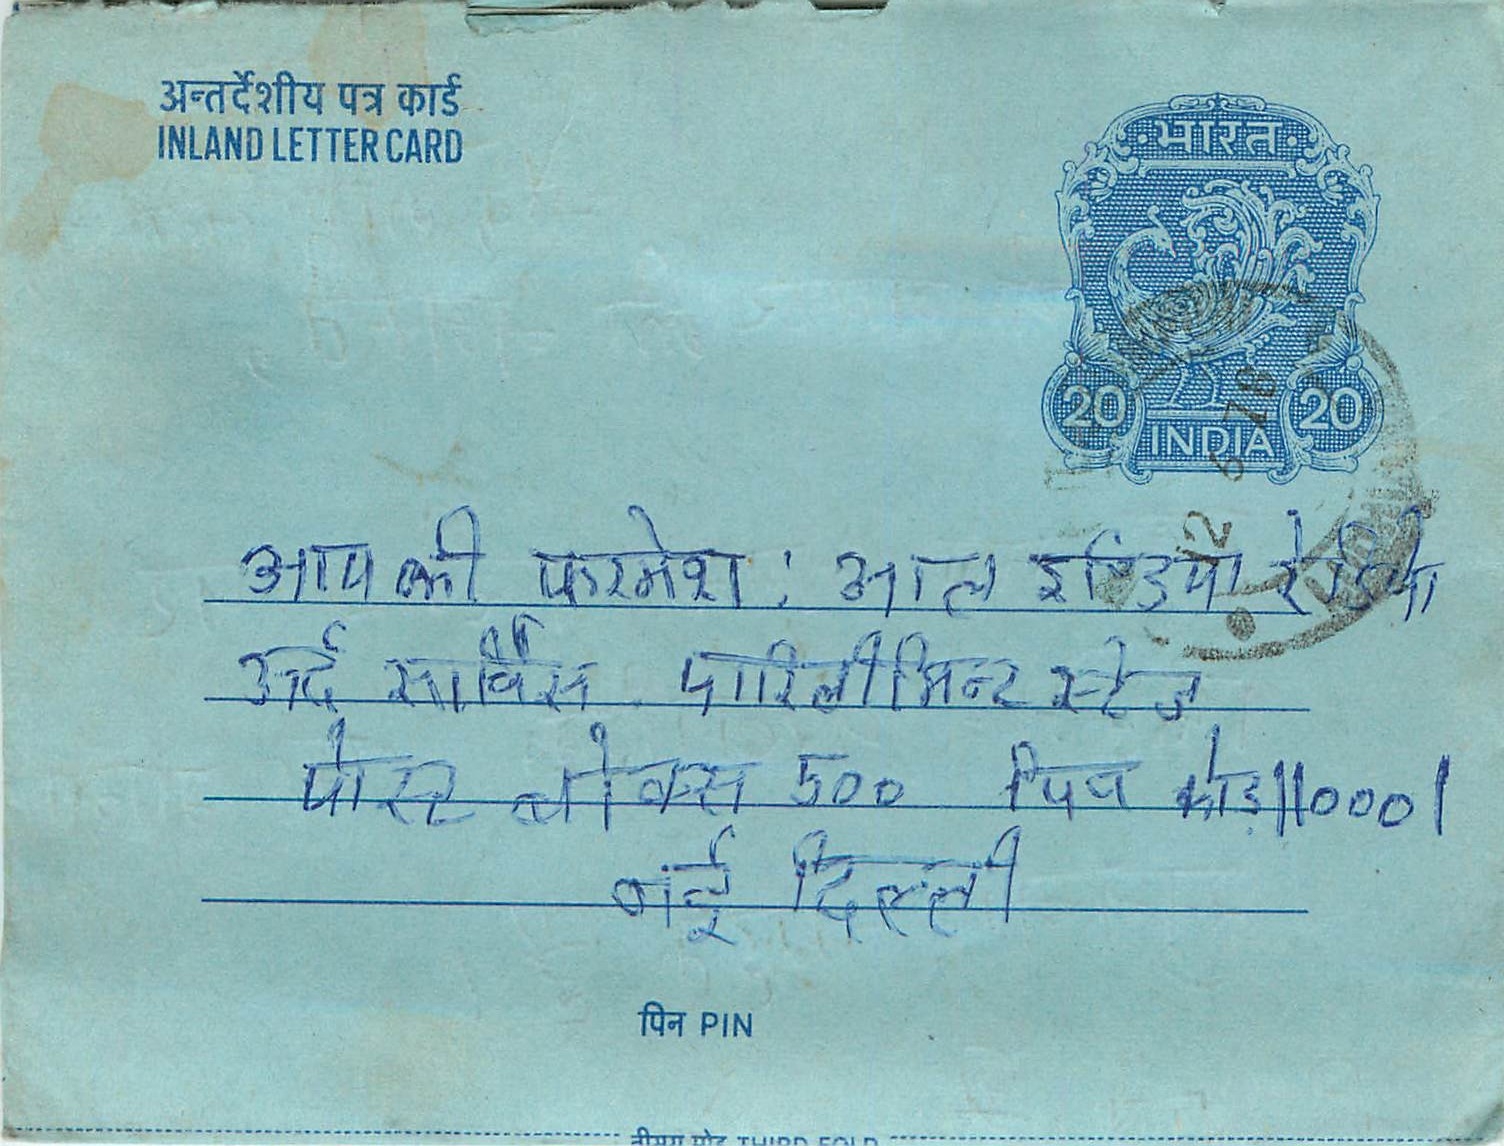 अन्तर्देशीय पत्र कार्ड
INLAND LETTER CARD
भारत
20 20
INDIA
12 6 78
आप की फरमेश : आल इण्डिया रेडियो
उर्द सार्विस पारिलीमिन्ट स्टेज
पोस्ट बोक्स 500 पिन कोड 110001
नई दिल्ली
पिन PIN
तीसरा मोड़ THIRD FOLD